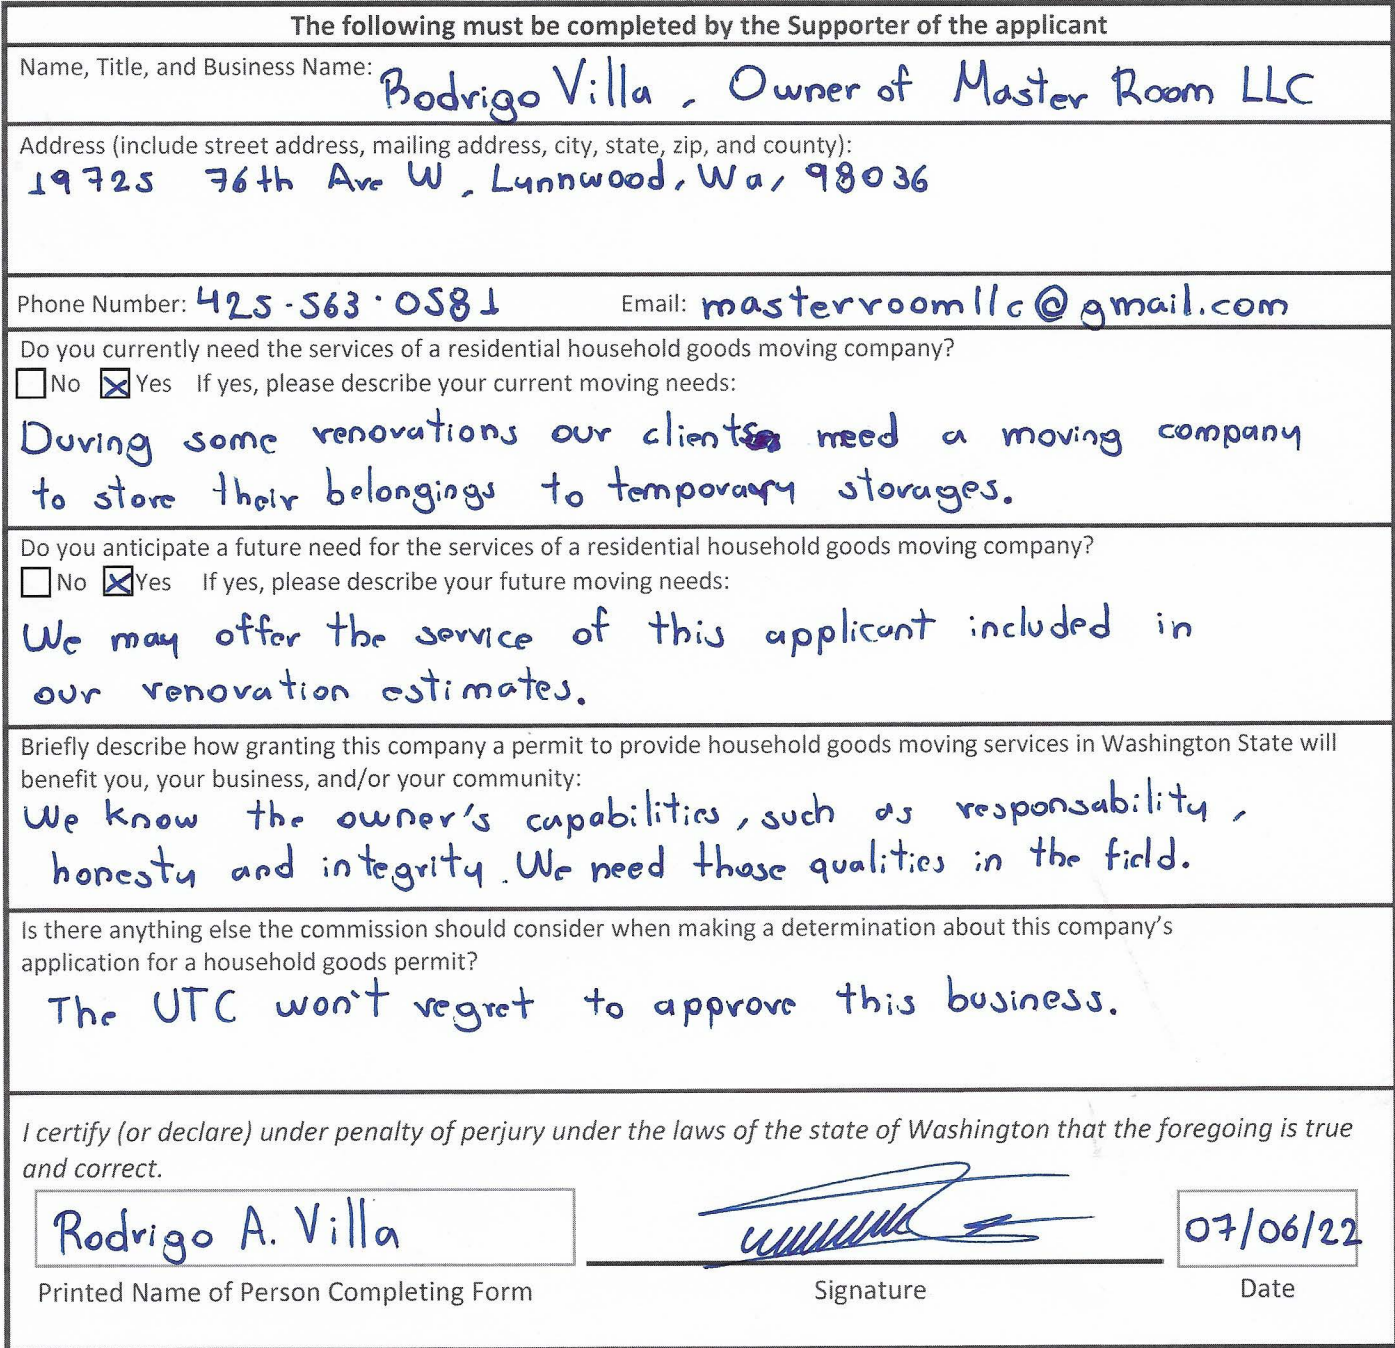 The following must be completed by the Supporter of the applicant
Name, Title, and Business Name: Rodrigo Villa, Owner of Master Room LLC
Address (include street address, mailing address, city, state, zip, and county):
19725 76th Ave W, Lynnwood, Wa, 98036
Phone Number: 425-563·0581 Email: masterroomllc@gmail.com
Do you currently need the services of a residential household goods moving company?
No Yes If yes, please describe your current moving needs:
During some renovations our clients need a moving company
to store their belongings to temporary storages.
Do you anticipate a future need for the services of a residential household goods moving company?
No Yes If yes, please describe your future moving needs:
We may offer the service of this applicant included in
our renovation estimates.
Briefly describe how granting this company a permit to provide household goods moving services in Washington State will
benefit you, your business, and/or your community:
We know the owner's capabilities, such as responsability,
honesty and integrity. We need those qualities in the field.
Is there anything else the commission should consider when making a determination about this company's
application for a household goods permit?
The UTC won't regret to approve this business.
I certify (or declare) under penalty of perjury under the laws of the state of Washington that the foregoing is true
and correct.
Rodrigo A. Villa 07/06/22
Printed Name of Person Completing Form Signature Date